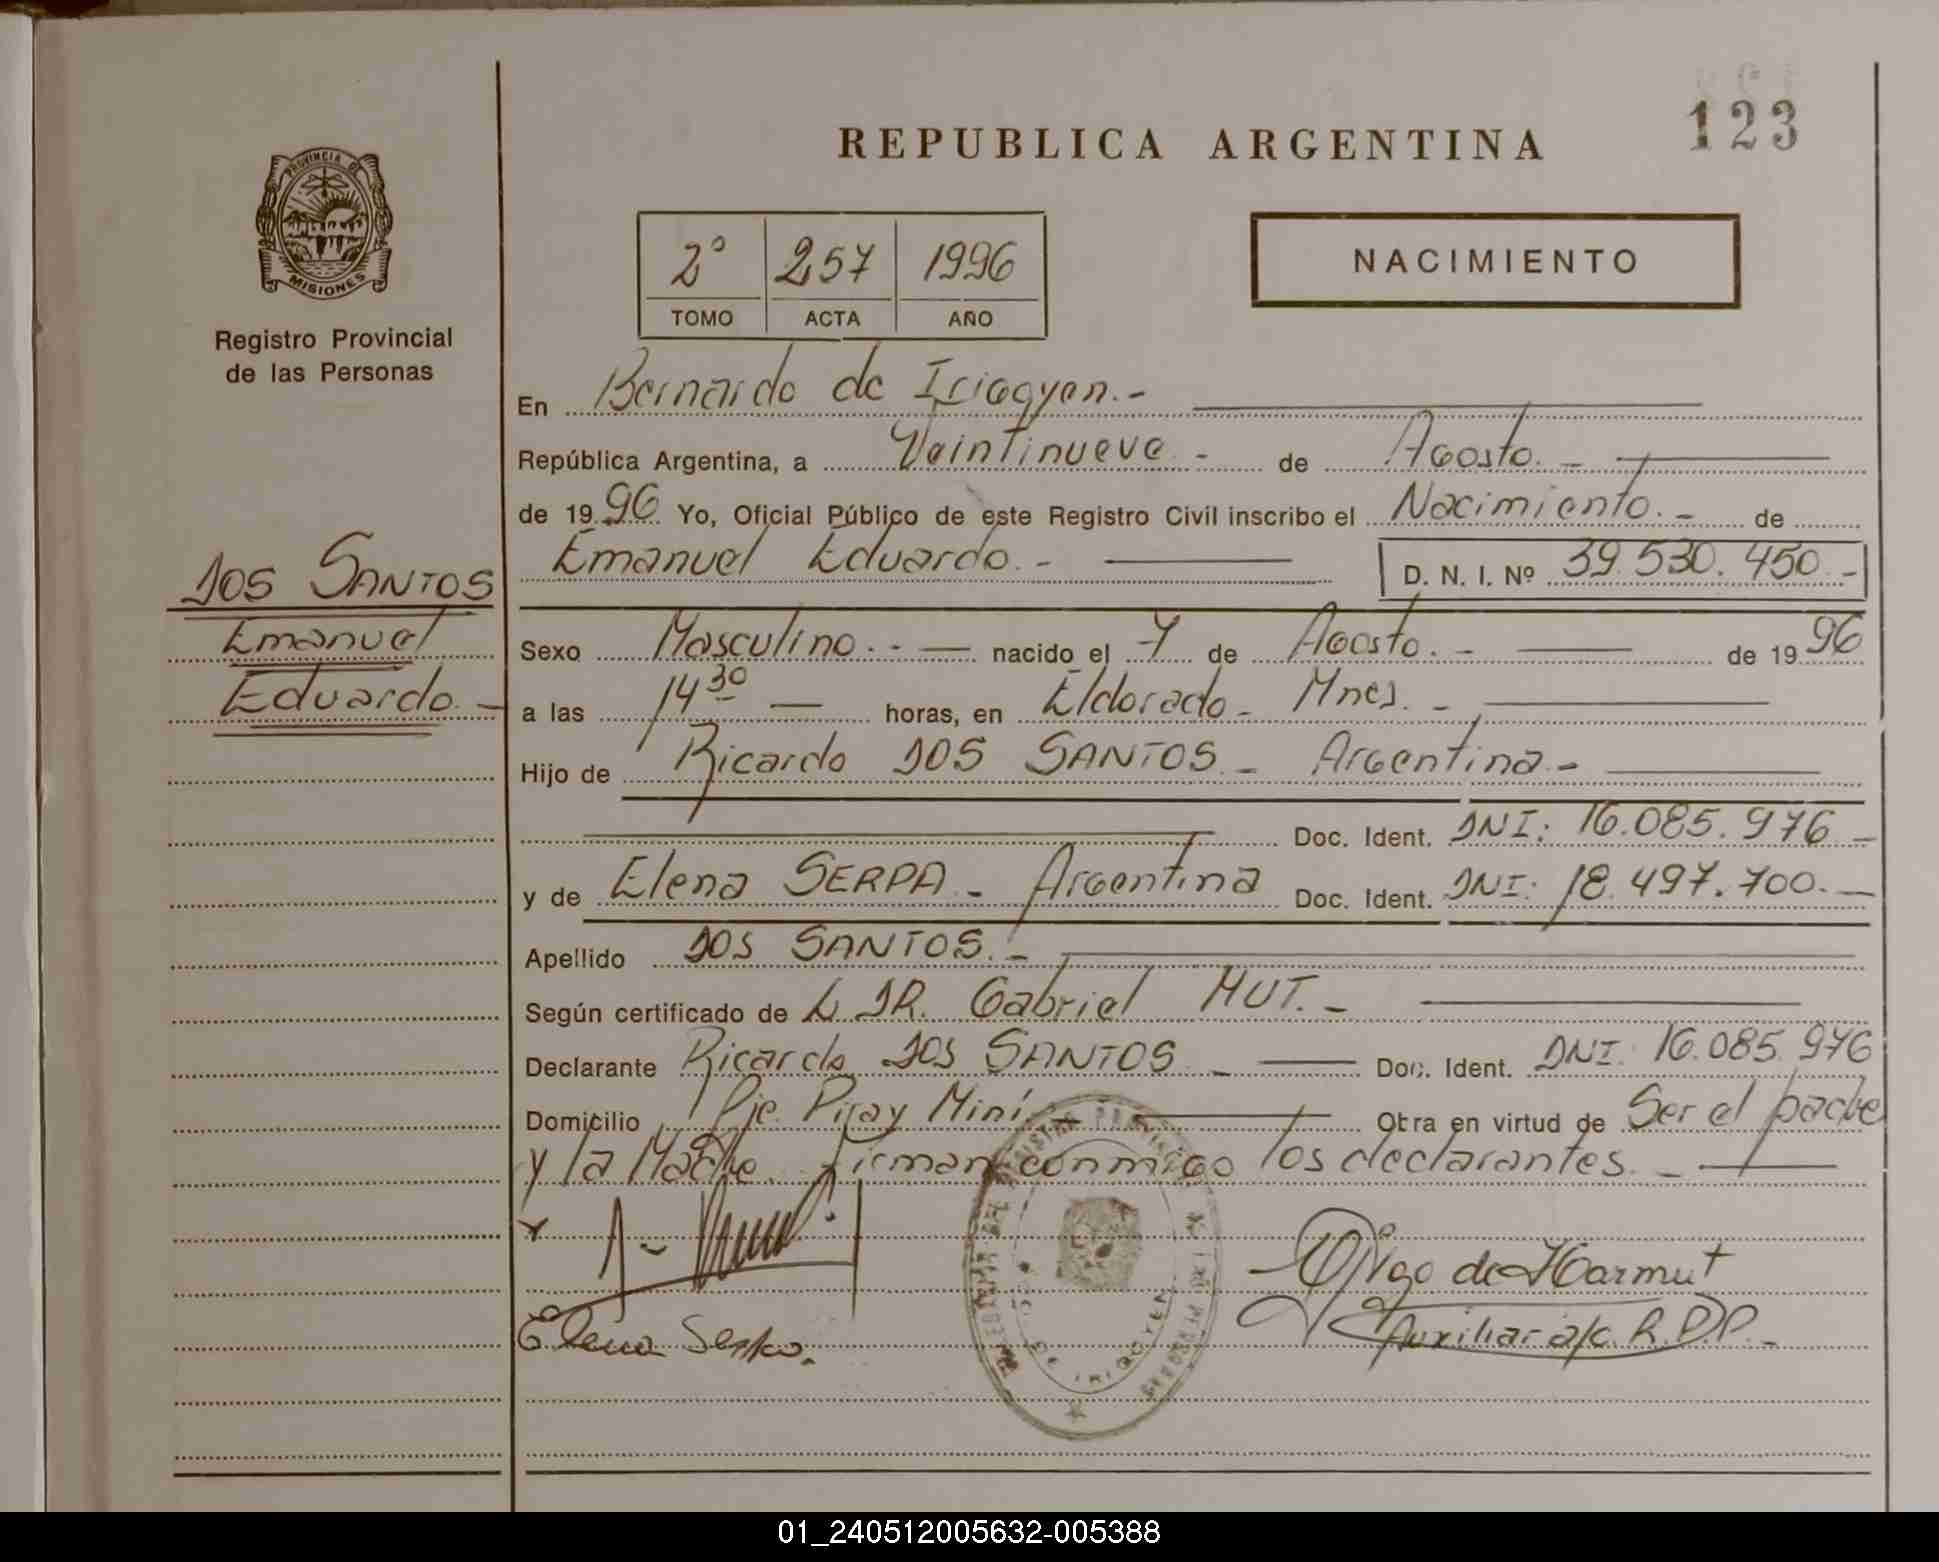 REPUBLICA ARGENTINA
123
PROVINCIA DE
MISIONES
Registro Provincial
de las Personas
2° 257 1996
TOMO ACTA AÑO
NACIMIENTO
En Bernardo de Irigoyen.-
República Argentina, a Veintinueve - de Agosto. -
de 1996 Yo, Oficial Público de este Registro Civil inscribo el Nacimiento. - de
Emanuel Eduardo. - D. N. I. Nº 39.530.450 -
DOS SANTOS
Emanuel
Eduardo. -
Sexo Masculino. - nacido el 7 de Agosto. - de 1996
a las 14 30 horas, en Eldorado - Mnes. -
Hijo de Ricardo DOS SANTOS - Argentina -
Doc. Ident. DNI: 16.085.976 -
y de Elena SERPA - Argentina Doc. Ident. DNI: 18.497.700. -
Apellido DOS SANTOS. -
Según certificado de DR. Gabriel MUT. -
Declarante Ricardo DOS SANTOS - Doc. Ident. DNI. 16.085.976
Domicilio Pje. Piray Miní Otra en virtud de Ser el padre
y la Madre. Firman conmigo los declarantes. -
Elena Serpa.
de Harmut
Auxiliar a/c. R.P.P. -
DE IRIGOYEN
01_240512005632-005388